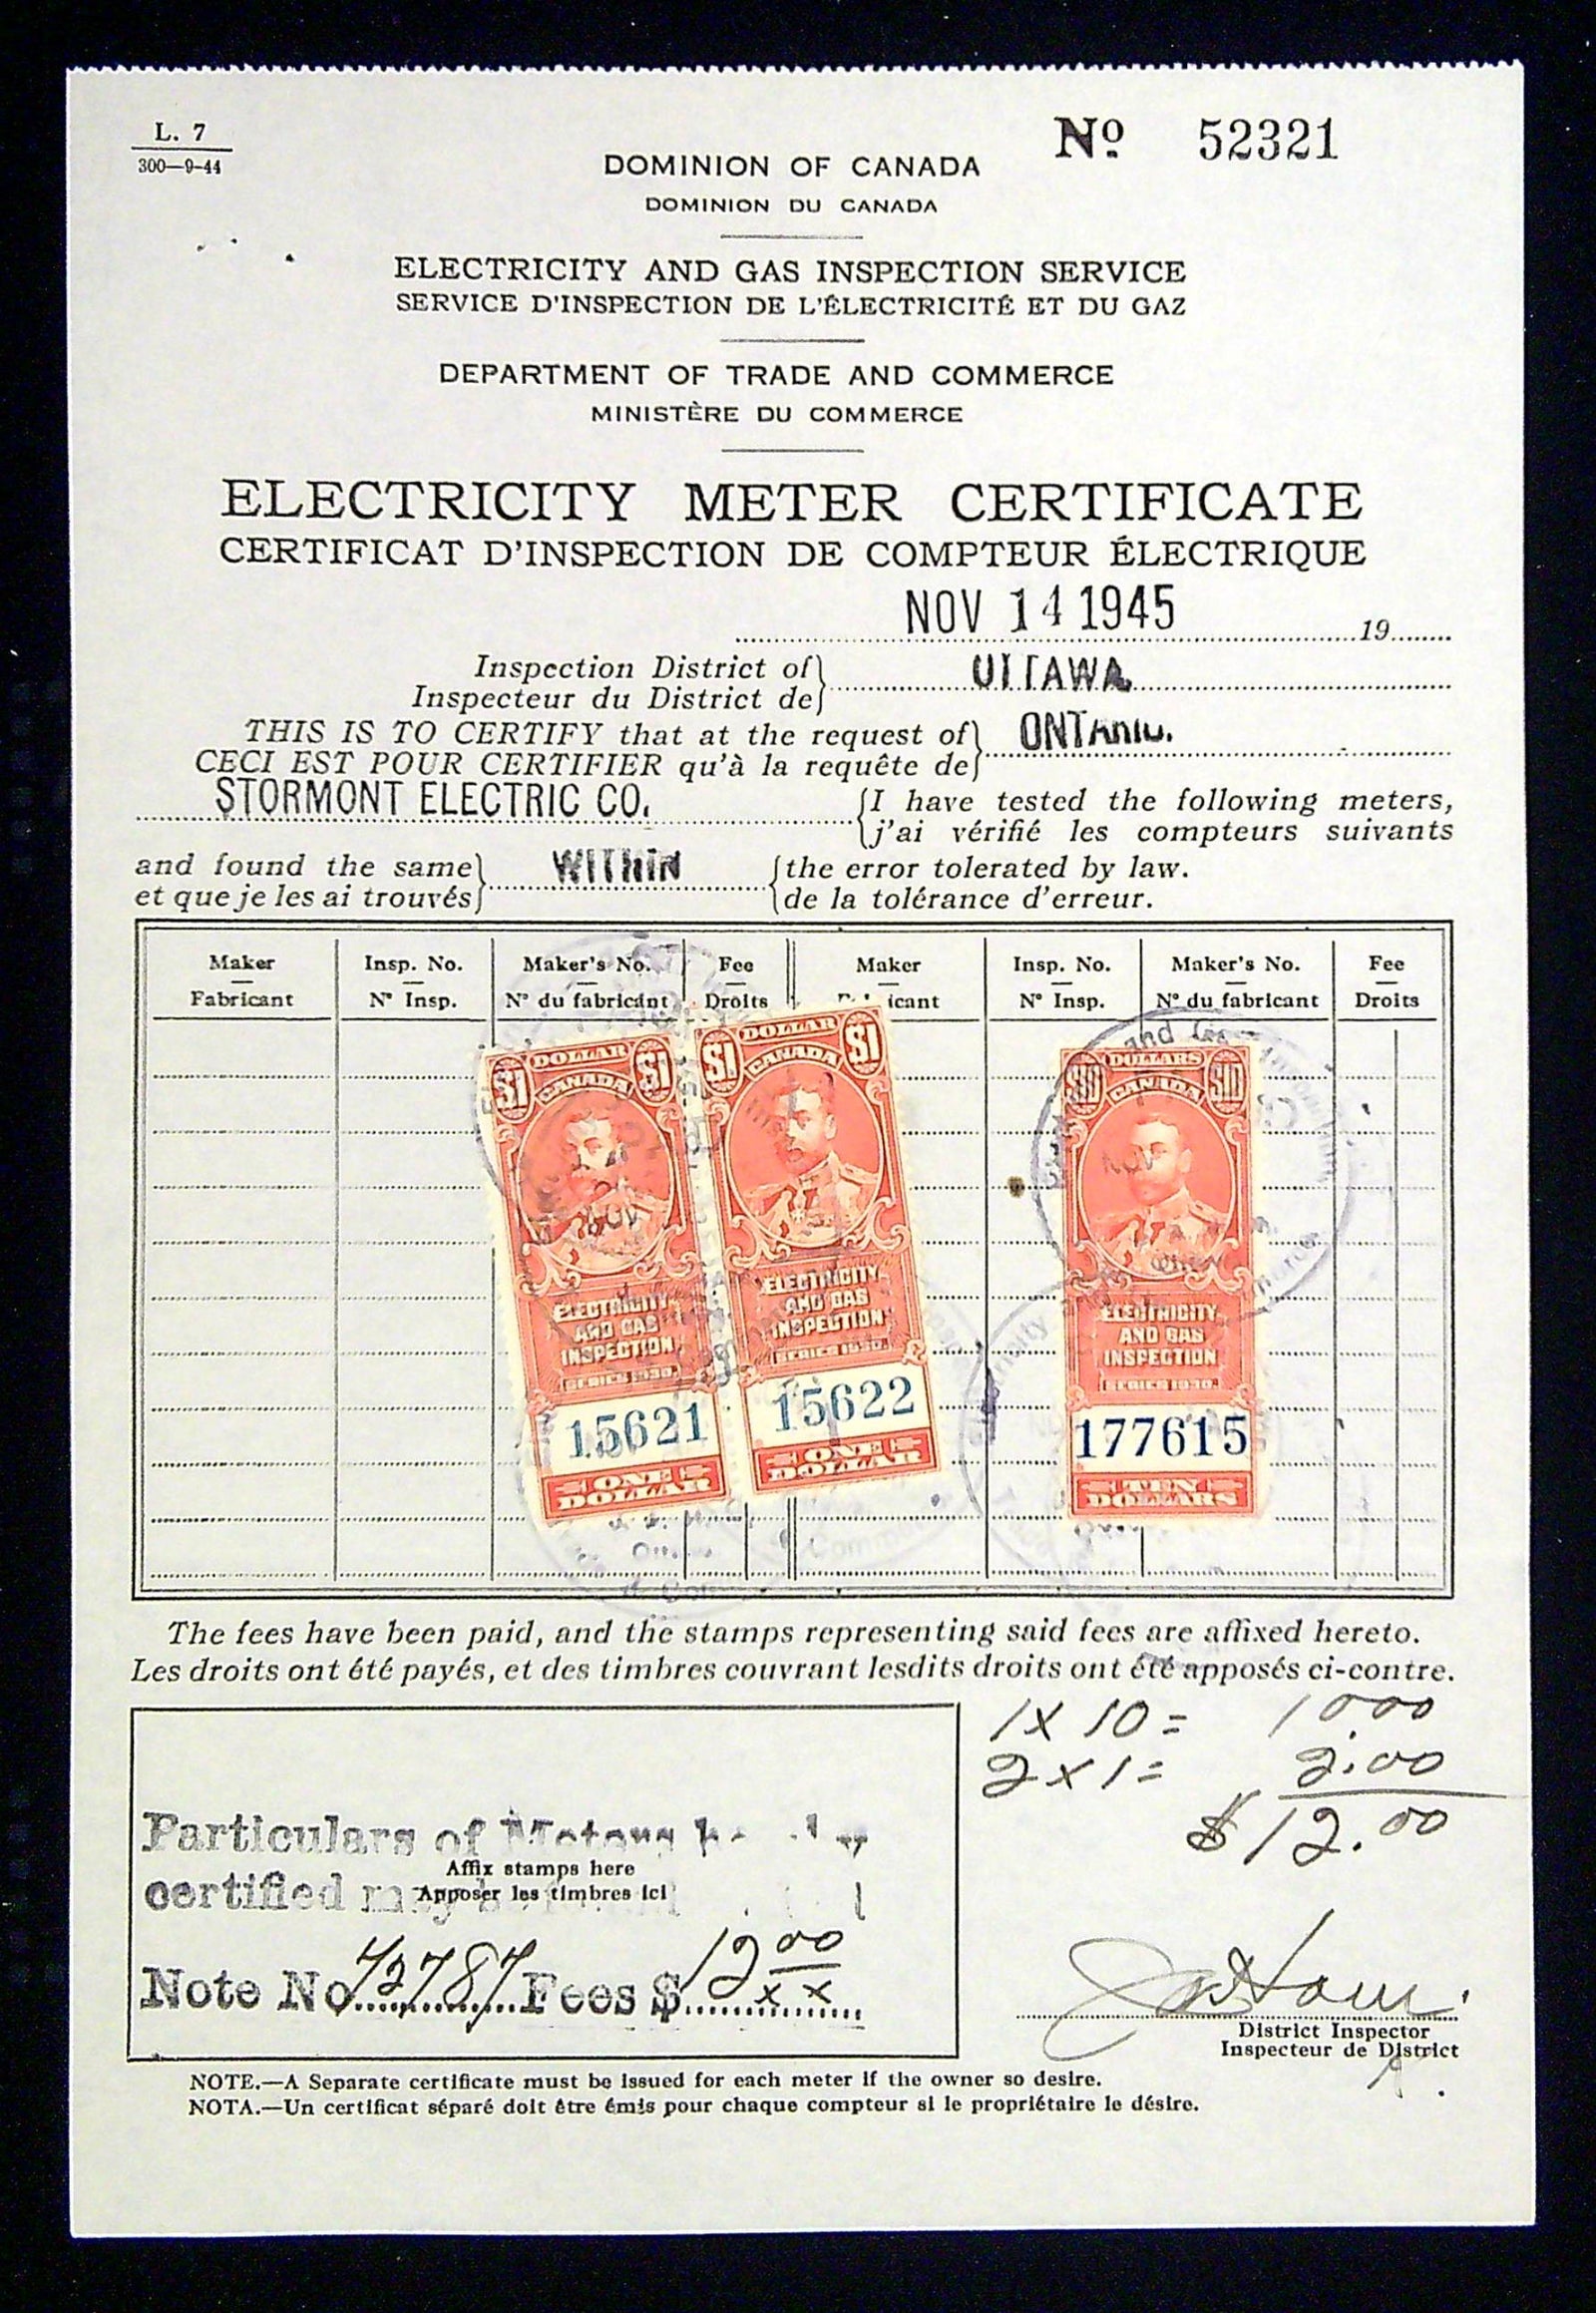 L. 7
300—9-44
Nº 52321
DOMINION OF CANADA
DOMINION DU CANADA
ELECTRICITY AND GAS INSPECTION SERVICE
SERVICE D'INSPECTION DE L'ÉLECTRICITÉ ET DU GAZ
DEPARTMENT OF TRADE AND COMMERCE
MINISTÈRE DU COMMERCE
ELECTRICITY METER CERTIFICATE
CERTIFICAT D'INSPECTION DE COMPTEUR ÉLECTRIQUE
NOV 14 1945 19
Inspection District of OTTAWA
Inspecteur du District de
THIS IS TO CERTIFY that at the request of ONTARIO.
CECI EST POUR CERTIFIER qu'à la requête de
STORMONT ELECTRIC CO. I have tested the following meters,
j'ai vérifié les compteurs suivants
and found the same WITHIN the error tolerated by law.
et que je les ai trouvés de la tolérance d'erreur.
Maker Insp. No. Maker's No. Fee Maker Insp. No. Maker's No. Fee
Fabricant Nº Insp. Nº du fabricant Droits Nº Insp. Nº du fabricant Droits
$1 DOLLAR $1
CANADA
ELECTRICITY
AND GAS
INSPECTION
SERIES 1930.
15621
ONE
DOLLAR
$1 DOLLAR $1
CANADA
ELECTRICITY
AND GAS
INSPECTION
SERIES 1930.
15622
ONE
DOLLAR
$10 DOLLARS $10
CANADA
ELECTRICITY
AND GAS
INSPECTION
SERIES 1930.
177615
TEN
DOLLARS
The fees have been paid, and the stamps representing said fees are affixed hereto.
Les droits ont été payés, et des timbres couvrant lesdits droits ont été apposés ci-contre.
1 x 10 = 10.00
2 x 1 = 2.00
$ 12.00
Particulars of Meters
Affix stamps here
certified may
Apposer les timbres ici
Note No. 42787 Fees $ 12 00
x x
District Inspector
Inspecteur de District
NOTE.—A Separate certificate must be issued for each meter if the owner so desire.
NOTA.—Un certificat séparé doit être émis pour chaque compteur si le propriétaire le désire.